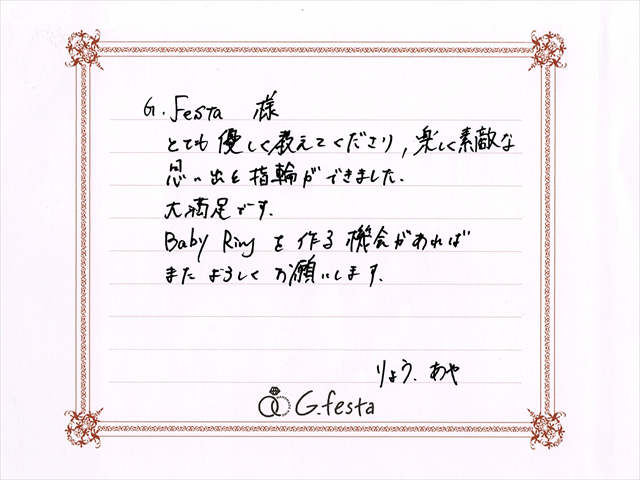 G.Festa 様
とても優しく教えてくださり,楽しく素敵な
思い出と指輪ができました.
大満足です.
Baby Ring を作る機会があれば
またよろしくお願いします.
りょう.あや
G.festa